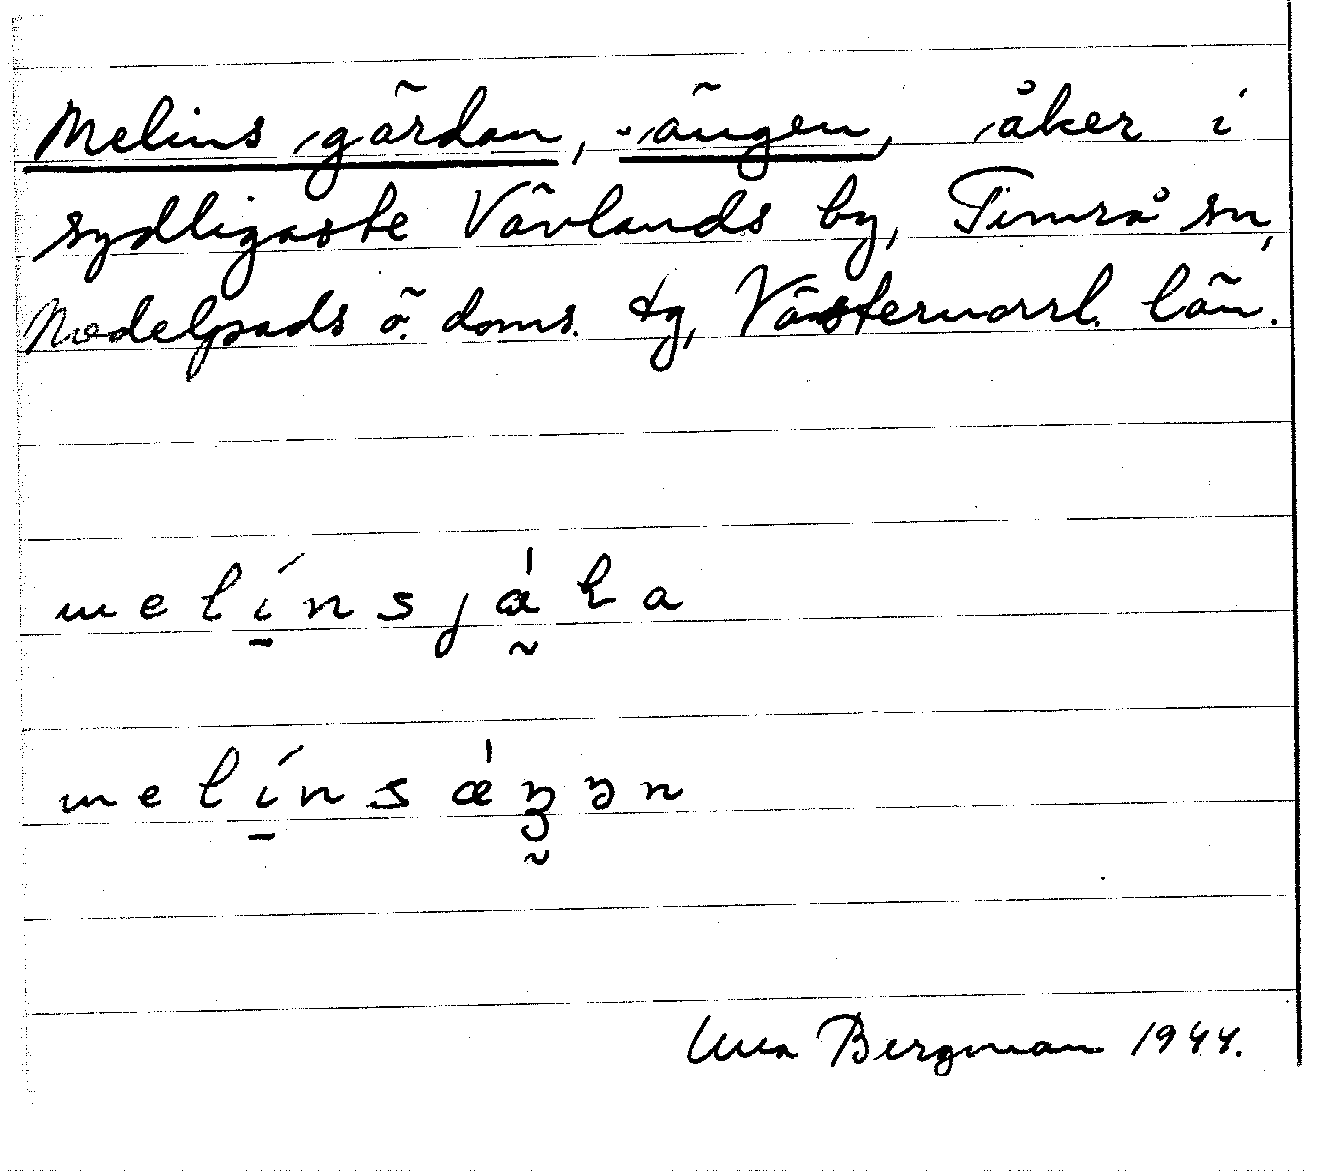 Melins gärdan, -ängen, åker i
sydligaste Vävlands by, Timrå sn,
Medelpads ö. doms. tg, Västernorrl. län.
melínsjǽɽa
melínsǽŋən
Bergman 1944.